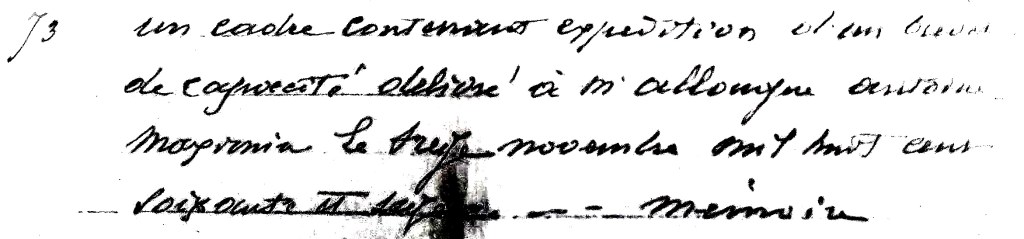 73 un cadre contenant expédition d'un brevet
de capacité délivré à M allongue antoine
Maximin le treize novembre mil huit cent
soixante et seize - - - mémoire